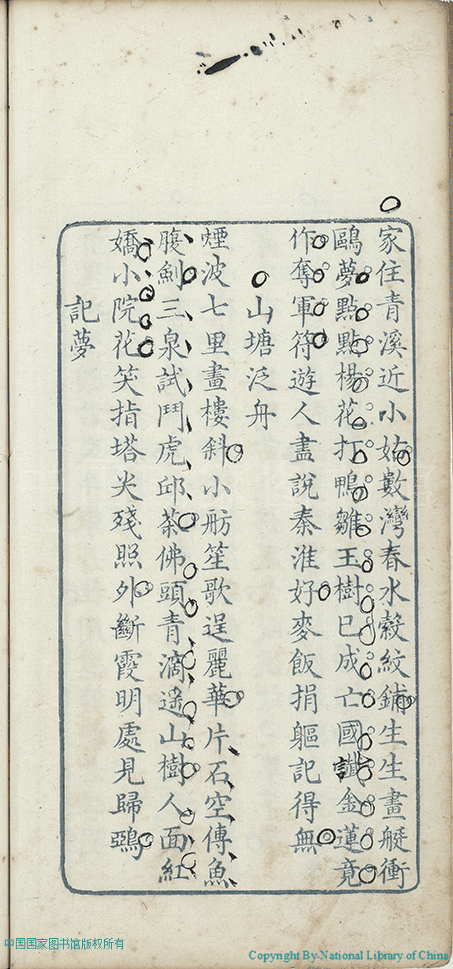 家住青溪近小姑數灣春水縠紋鋪生生畫艇衝
鷗夢點點楊花打鴨雛玉樹已成亡國讖金蓮竟
作奪軍符遊人盡說秦淮好麥飯捐軀記得無
山塘泛舟
煙波七里畫樓斜小舫笙歌逞麗華片石空傳魚
腹劍三泉試鬥虎邱茶佛頭青滴遥山樹人面紅
嬌小院花笑指塔尖殘照外斷霞明處見歸鴉
記夢
中国国家图书馆版权所有
Copyright By National Library of China